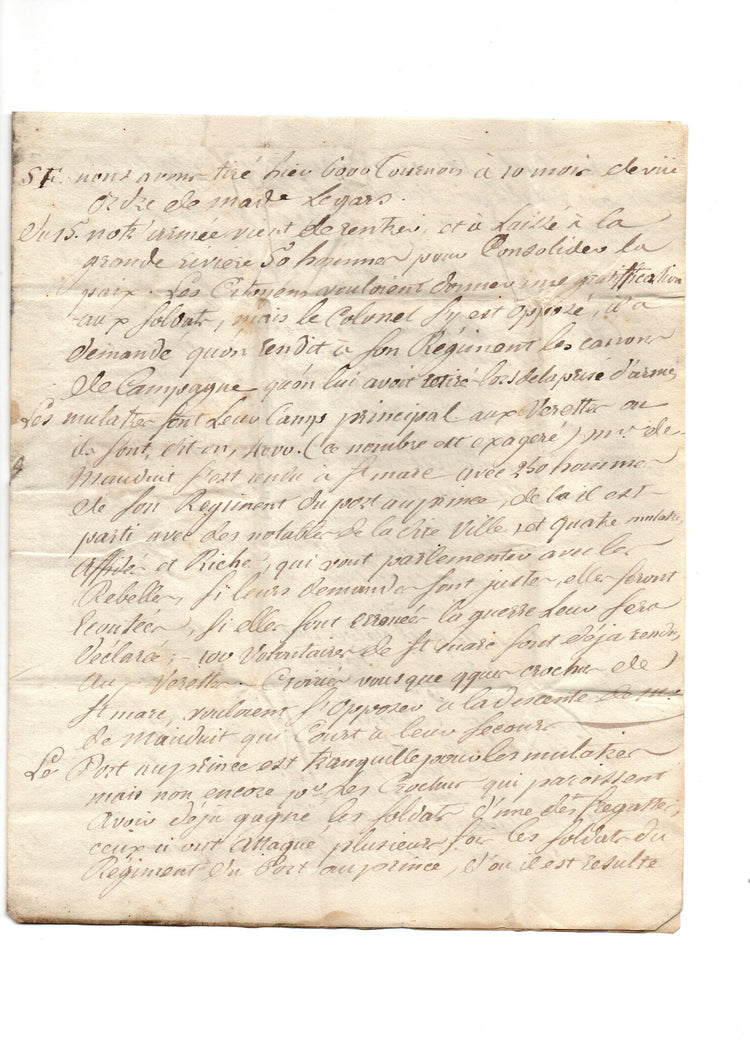 nous avons tiré hier 6000 Tournois à 10 mois de vüe
Ordre de made Legars.
Du 15. notr'armée vient de rentrer, et à Laissé à la
grande riviere 50 hommes pour Consolider la
paix. Les Citoyens vouloient donner une gratification
aux soldats, mais le Colonel s'y est opposé, il a
demandé qu'on rendit à son Régiment les canons
de Campagne qu'on lui avoit retiré lors de la prise d'armes
Les mulatres sont Leur Camp principal aux Verettes ou
ils sont, dit on, (ce nombre est exageré) mr. de
Mauduit s'est rendu à St marc avec 250 hommes
de son Regiment du port au prince, de la il est
parti avec des notables de la dite Ville, et quatre mulatres
affidés et Riches, qui vont parlementer avec les
Rebelles, si leurs demandes sont justes, elles seront
Ecoutées, si elles sont erronées la guerre Leur sera
Déclarée; 100 Volontaires de St marc sont déja rendus
aux Verettes. Croiriés vous que qques crochus de
St marc, vouloient s'opposer à la descente de mr.
de Mauduit qui Court à leur secours
Le Port au prince est tranquille pour les mulatres
mais non encore pr. les Crochus qui paroissent
avoir déja gagné les soldats d'une des fregattes,
ceux ci ont attaqué plusieurs fois les soldats du
Régiment du Port au prince, d'où il est resulté